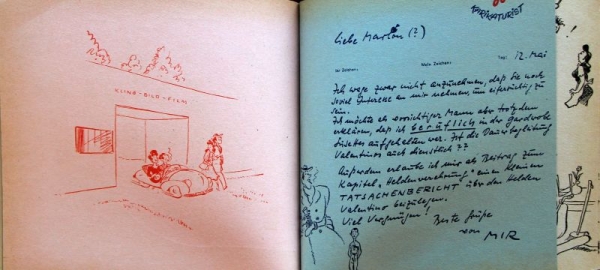 KLING-BILD-FILM
KARIKATURIST
Liebe Marlon (?)
Ihr Zeichen:
Mein Zeichen:
Tag: 12. Mai
Ich wage zwar nicht anzunehmen, daß Sie noch
soviel Interesse an mir nehmen, um eifersüchtig zu
sein.
Ich möchte als vorsichtiger Mann aber trotzdem
erklären, daß ich beruflich in der Garderobe
aufgehalten war. Ist die
Valentinos auch dienstlich ??
Außerdem erlaube ich mir als Beitrag zum
Kapitel "Heldenverehrung" einen kleinen
TATSACHENBERICHT über den Helden
Valentino beizulegen.
Viel Vergnügen!
Beste Grüße
von MIR